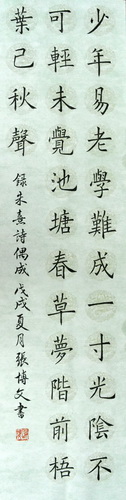 少年易老學難成一寸光陰不
可輕未覺池塘春草夢階前梧
葉已秋聲
錄朱熹詩偶成 戊戌夏月張博文書